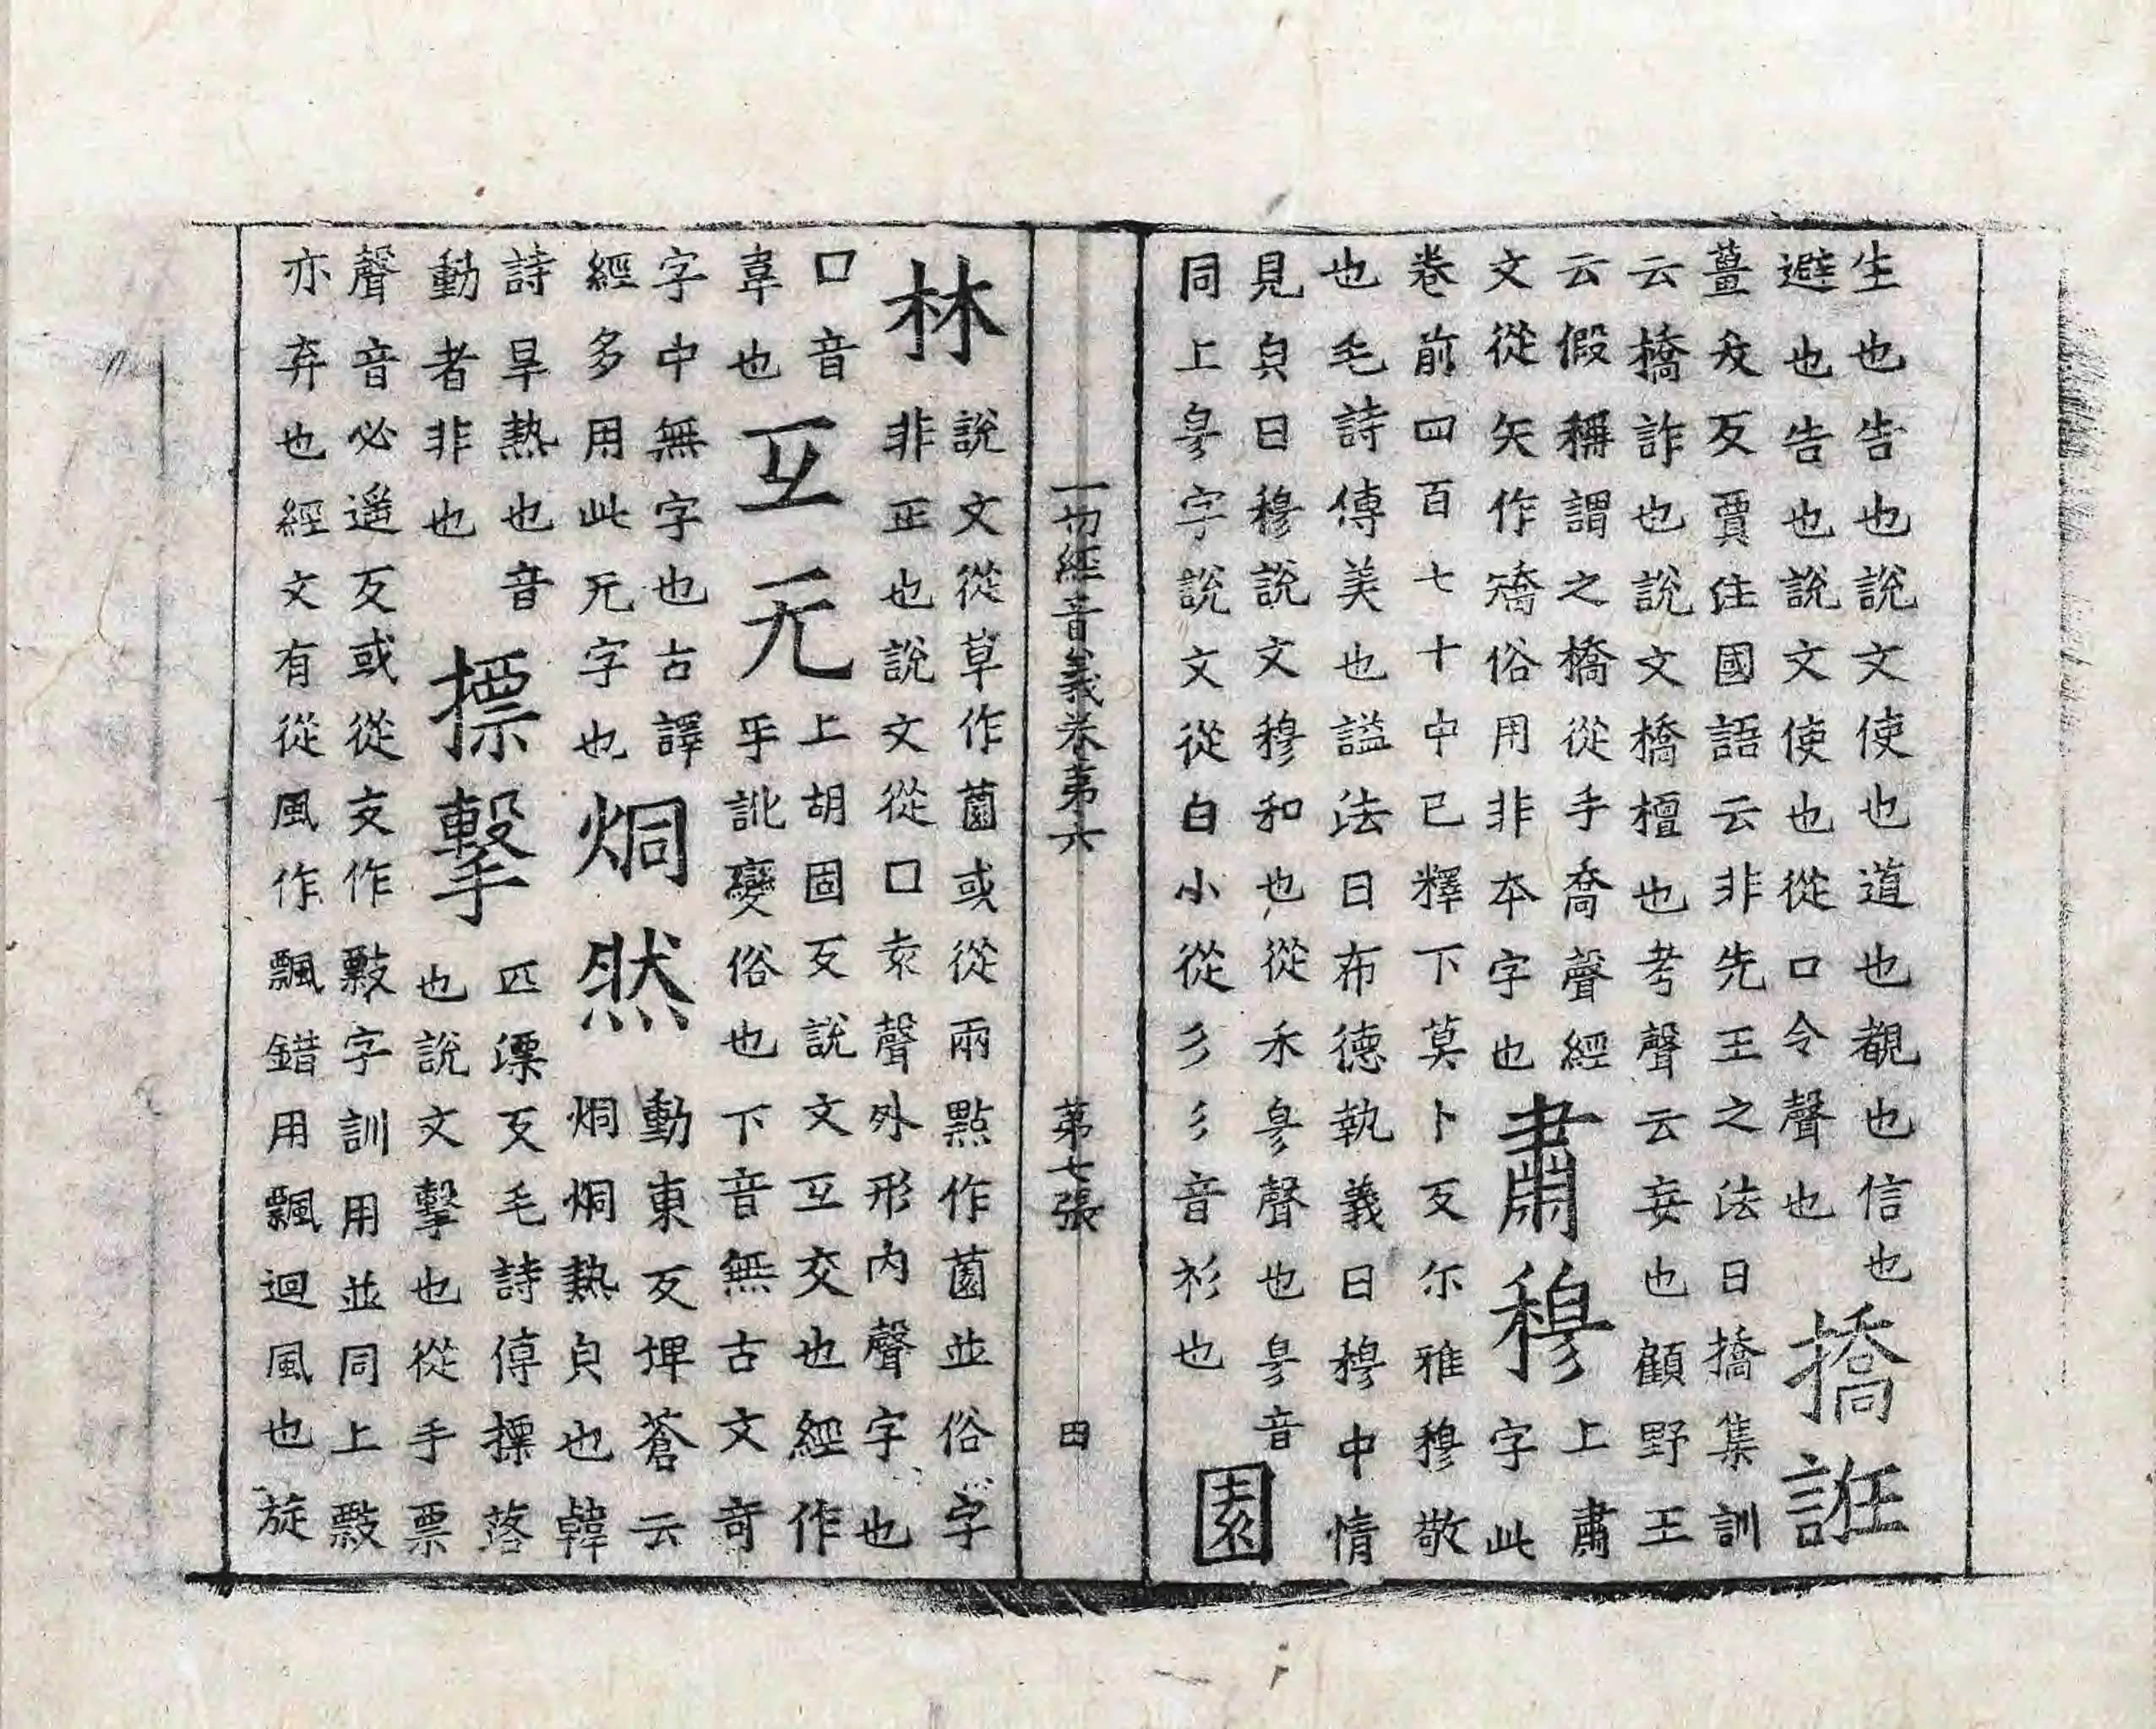 生也告也說文使也道也覩也信也
避也告也說文使也從口令聲也
撟誑
薑夭反賈注國語云非先王之法曰撟集訓
云橋詐也說文橋檀也考聲云妄也顧野王
云假稱謂之橋從手喬聲經
文從矢作矯俗用非本字也
肅穆
上肅
字此
卷前四百七十中已釋下莫卜反尒雅穆敬
也毛詩傳美也謚法曰布德執義曰穆中情
見皃曰穆說文穆和也從禾㣎聲也㣎音
同上㣎字說文從白小從彡彡音衫也
園
一切經音義卷第六 第七張 四
林
說文從草作薗或從兩點作薗並俗字
非正也說文從口袁聲外形內聲字也
口音
韋也
互无
上胡固反說文互交也經作
乎訛變俗也下音無古文奇
字中無字也古譯
經多用此无字也
烔然
動東反埤蒼云
烔烔熱皃也韓
詩旱熱也音
動者非也
摽擊
匹漂反毛詩傳摽落
也說文擊也從手票
聲音必遥反或從攴作㩠字訓用並同上㩠
亦弃也經文有從風作飄錯用飄迴風也旋